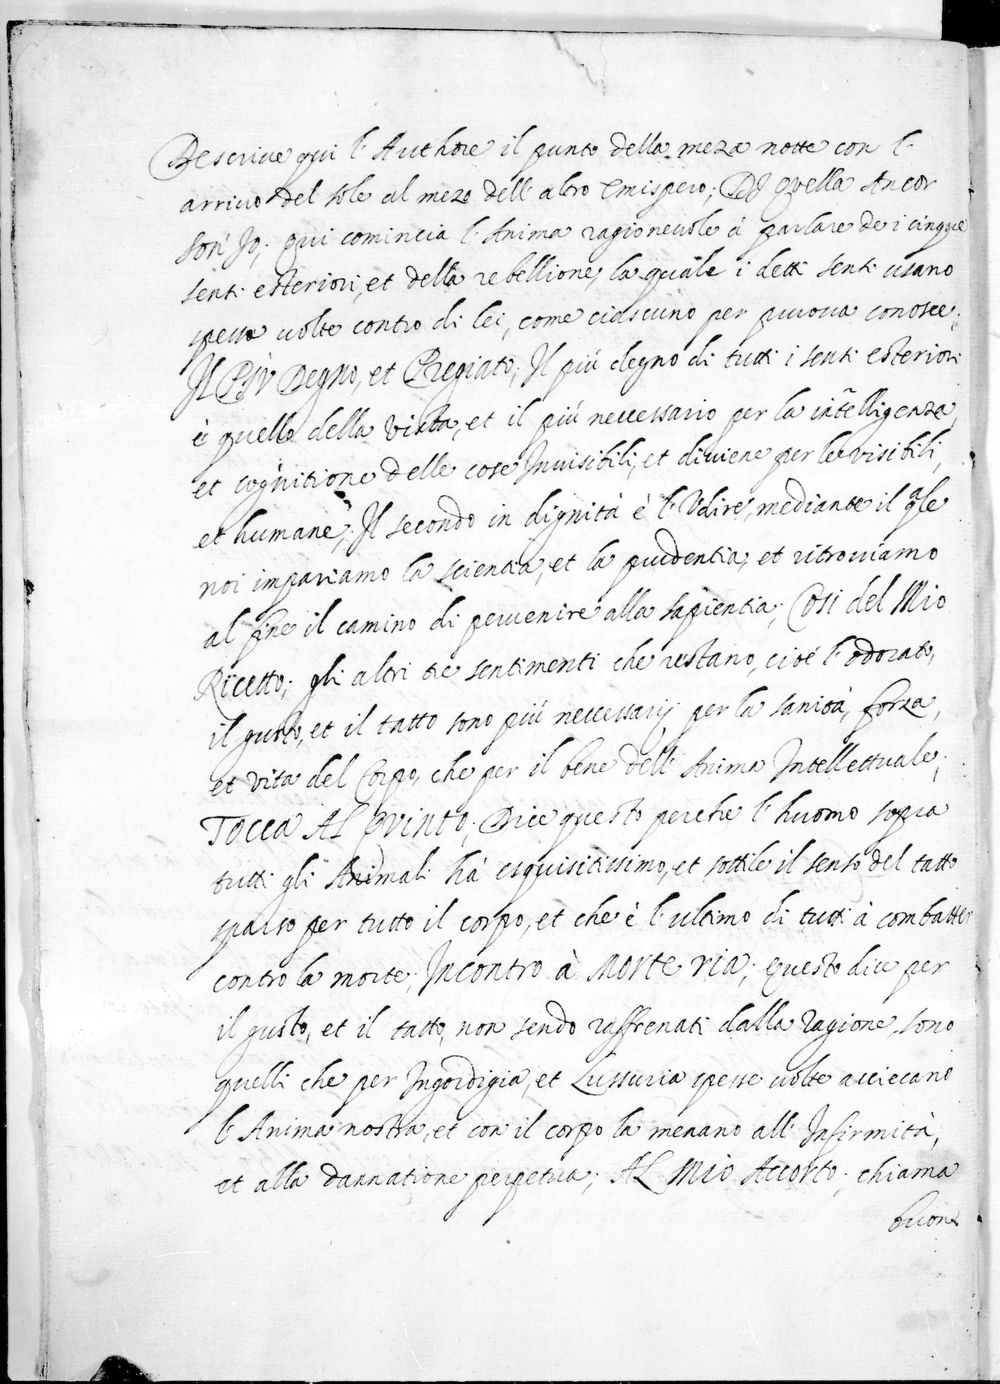 Descriue qui l'Authore il punto della meza notte con l'
arriuo del sole al mezo dell'altro Emispero; DI quella Ancor
son' Io; qui comincia l'Anima ragioneuole à parlare de i cinque
senti esteriori, et della rebellione, la quale i detti senti usano
spesse uolte contro di lei, come ciascuno per pruoua conosce;
Il PIV Degno, et Pregiato; Il più degno di tutti i senti esteriori
è quello della Vista, et il più neccessario per la intelligenza,
et cognitione delle cose Inuisibili, et diuiene per le visibili,
et humane; Il secondo in dignità è l'Vdire, mediante il qale
noi impariamo la scientia, et la prudentia, et ritrouiamo
al fine il camino di peruenire alla sapientia; Cosi del Mio
Ricetto; gli altri tre sentimenti che restano, cioè l'odorato,
il gusto, et il tatto sono più neccessarij per la sanità, forza,
et vita del Corpo, che per il bene dell'Anima Intellettuale;
TOCCA AL QVINTO; Dice questo perche l'huomo sopra
tutti gli Animali hà esquisitissimo, et sottile il senso del tatto
sparso per tutto il corpo, et che è l'ultimo di tutti à combatter
contro la morte; Incontro à Morte ria; questo dice per
il gusto, et il tatto, non sendo raffrenati dalla ragione, sono
quelli che per Ingordigia, et Lussuria spesse uolte acciecano
l'Anima nostra, et con il corpo la menano all'Infirmità,
et alla dannatione perpetua; AL Mio Accorto; chiama
buone